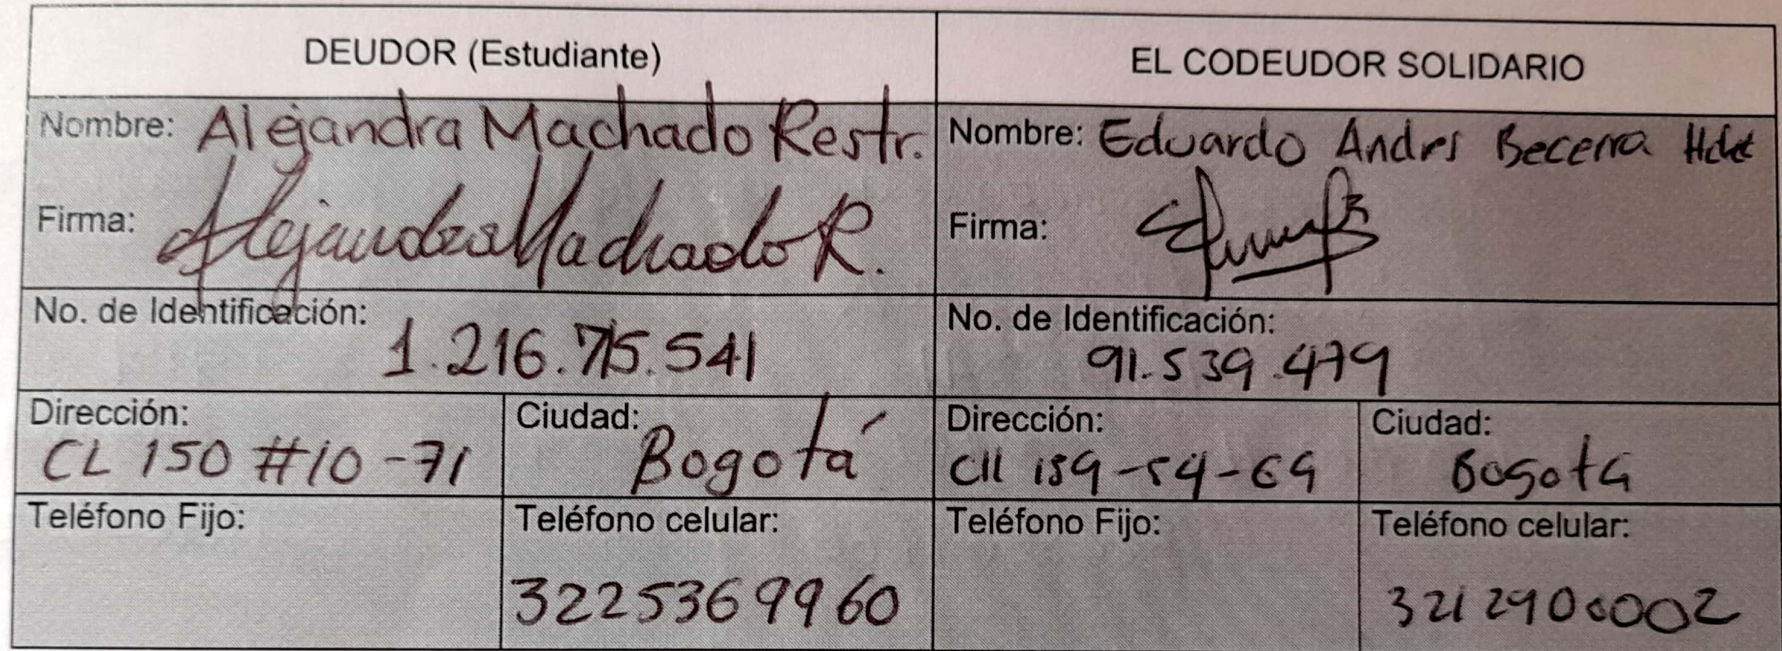 DEUDOR (Estudiante)
EL CODEUDOR SOLIDARIO
Nombre: Alejandra Machado Restr.
Nombre: Eduardo Andres Becerra
Firma: Alejandra Machado R.
Firma:
No. de Identificación:
1.216.715.541
No. de Identificación:
91.539.479
Dirección:
CL 150 #10-71
Ciudad:
Bogotá
Dirección:
Cll 159-54-69
Ciudad:
Bogota
Teléfono Fijo:
Teléfono celular:
3225369960
Teléfono Fijo:
Teléfono celular:
3212900002